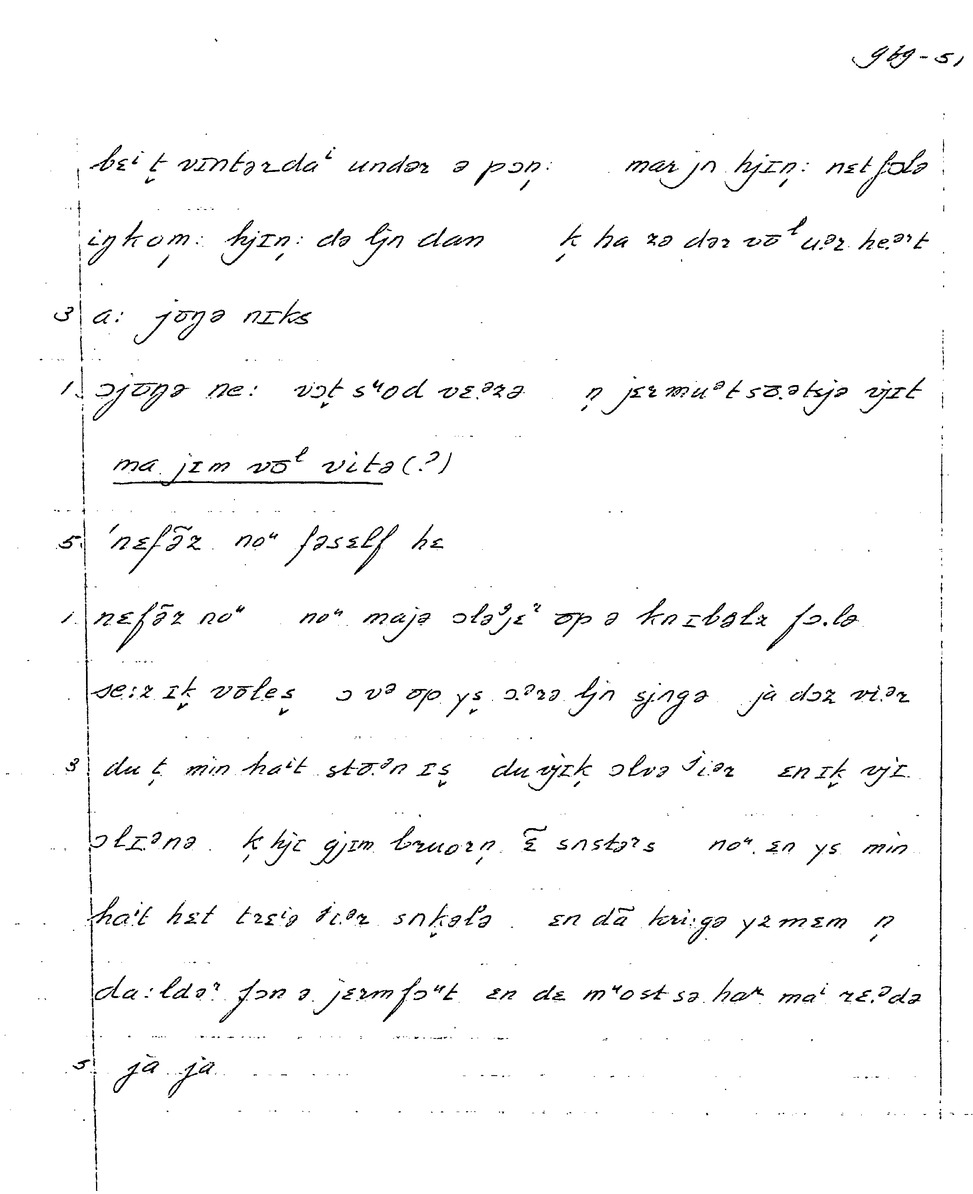 gbg-51
bɛⁱ t̬ vɪntərdaⁱ undər ə pɔn̩: mar jn hjɪn̩: nɛt fɔlə
iŋkom̩: hjɪn̩: də ljn dan k̩ ha zə dər vō ˡ u.ər heər t
3 a: jōŋə nɪks
1. ɔjōŋə ne: vɔt̬ sᵘod vɛ.ərə n̩ jɛrmuᵊt sō.ətsjə vjɪt
ma jɪm vōˡ vitə (?)
5. 'nɛfə̃z noᵘ fəsɛlf hɛ
1. nɛfə̃z noᵘ noᵘ majə ōp ə fɔ.lə
se:z ɪk̬ vōles̬ ɔ və op ys̬ ɔ.ərə ljn sjngə ja dɔz vi.ər
3 du t̬ min haⁱt stō.ən ɪs̬ du vjɪk̬ ɔlvə ʲi.ər ɛn ɪk̬ vjɪ
ɔlɪ.ənə k̩ hjɪ gjɪm bruorn̩ ɛ̃ snstəʳs noᵘ. ɛn ys min
haⁱt hɛt trɛⁱə ʲi.ər snk̬ələ ɛn dā kri:gə yz mɛm n̩
da:ldəʳ fɔn ə jɛrmfɔᵘt ɛn dɛ mᵘost sə har maⁱ rɛ.ədə
5. ja ja